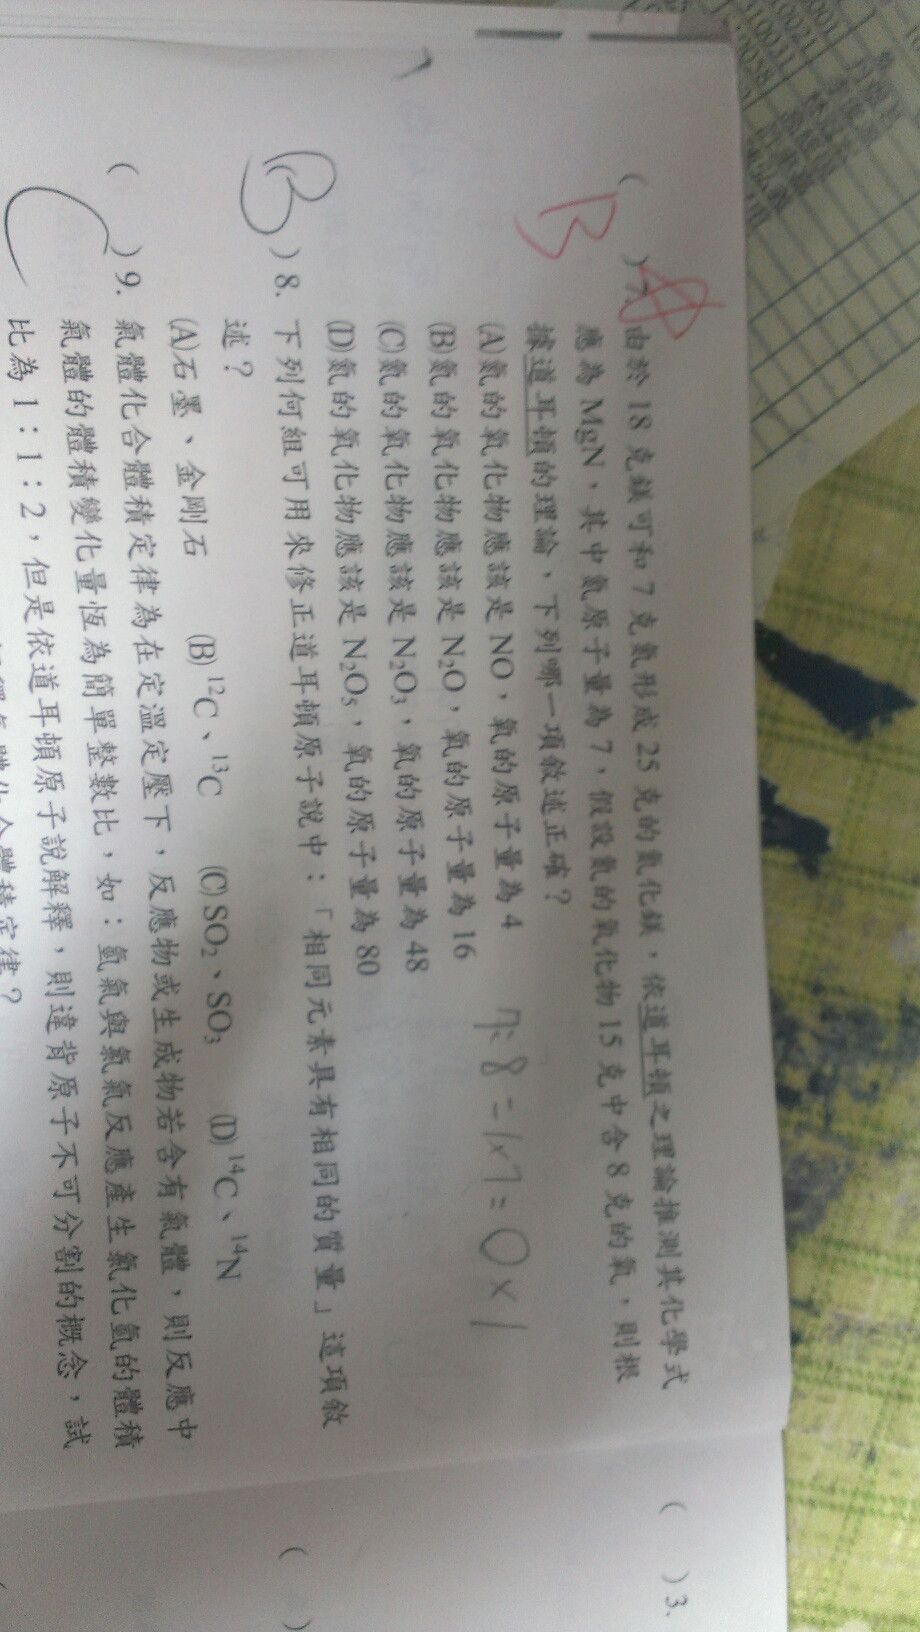 B
( )7. 由於 18 克鎂可和 7 克氮形成 25 克的氮化鎂，依道耳頓之理論推測其化學式
應為 MgN，其中氮原子量為 7，假設氮的氧化物 15 克中含 8 克的氧，則根
據道耳頓的理論，下列哪一項敘述正確？
(A)氮的氧化物應該是 NO，氧的原子量為 4
(B)氮的氧化物應該是 N₂O，氧的原子量為 16
(C)氮的氧化物應該是 N₂O₃，氧的原子量為 48
(D)氮的氧化物應該是 N₂O₅，氧的原子量為 80
B
( )8. 下列何組可用來修正道耳頓原子說中：「相同元素具有相同的質量」這項敘
述？
(A)石墨、金剛石 (B)¹²C、¹³C (C)SO₂、SO₃ (D)¹⁴C、¹⁴N
C
( )9. 氣體化合體積定律為在定溫定壓下，反應物或生成物若含有氣體，則反應中
氣體的體積變化量恆為簡單整數比，如：氫氣與氯氣反應產生氯化氫的體積
比為 1：1：2，但是依道耳頓原子說解釋，則違背原子不可分割的概念，試
氣體化合體積定律？
( )3.